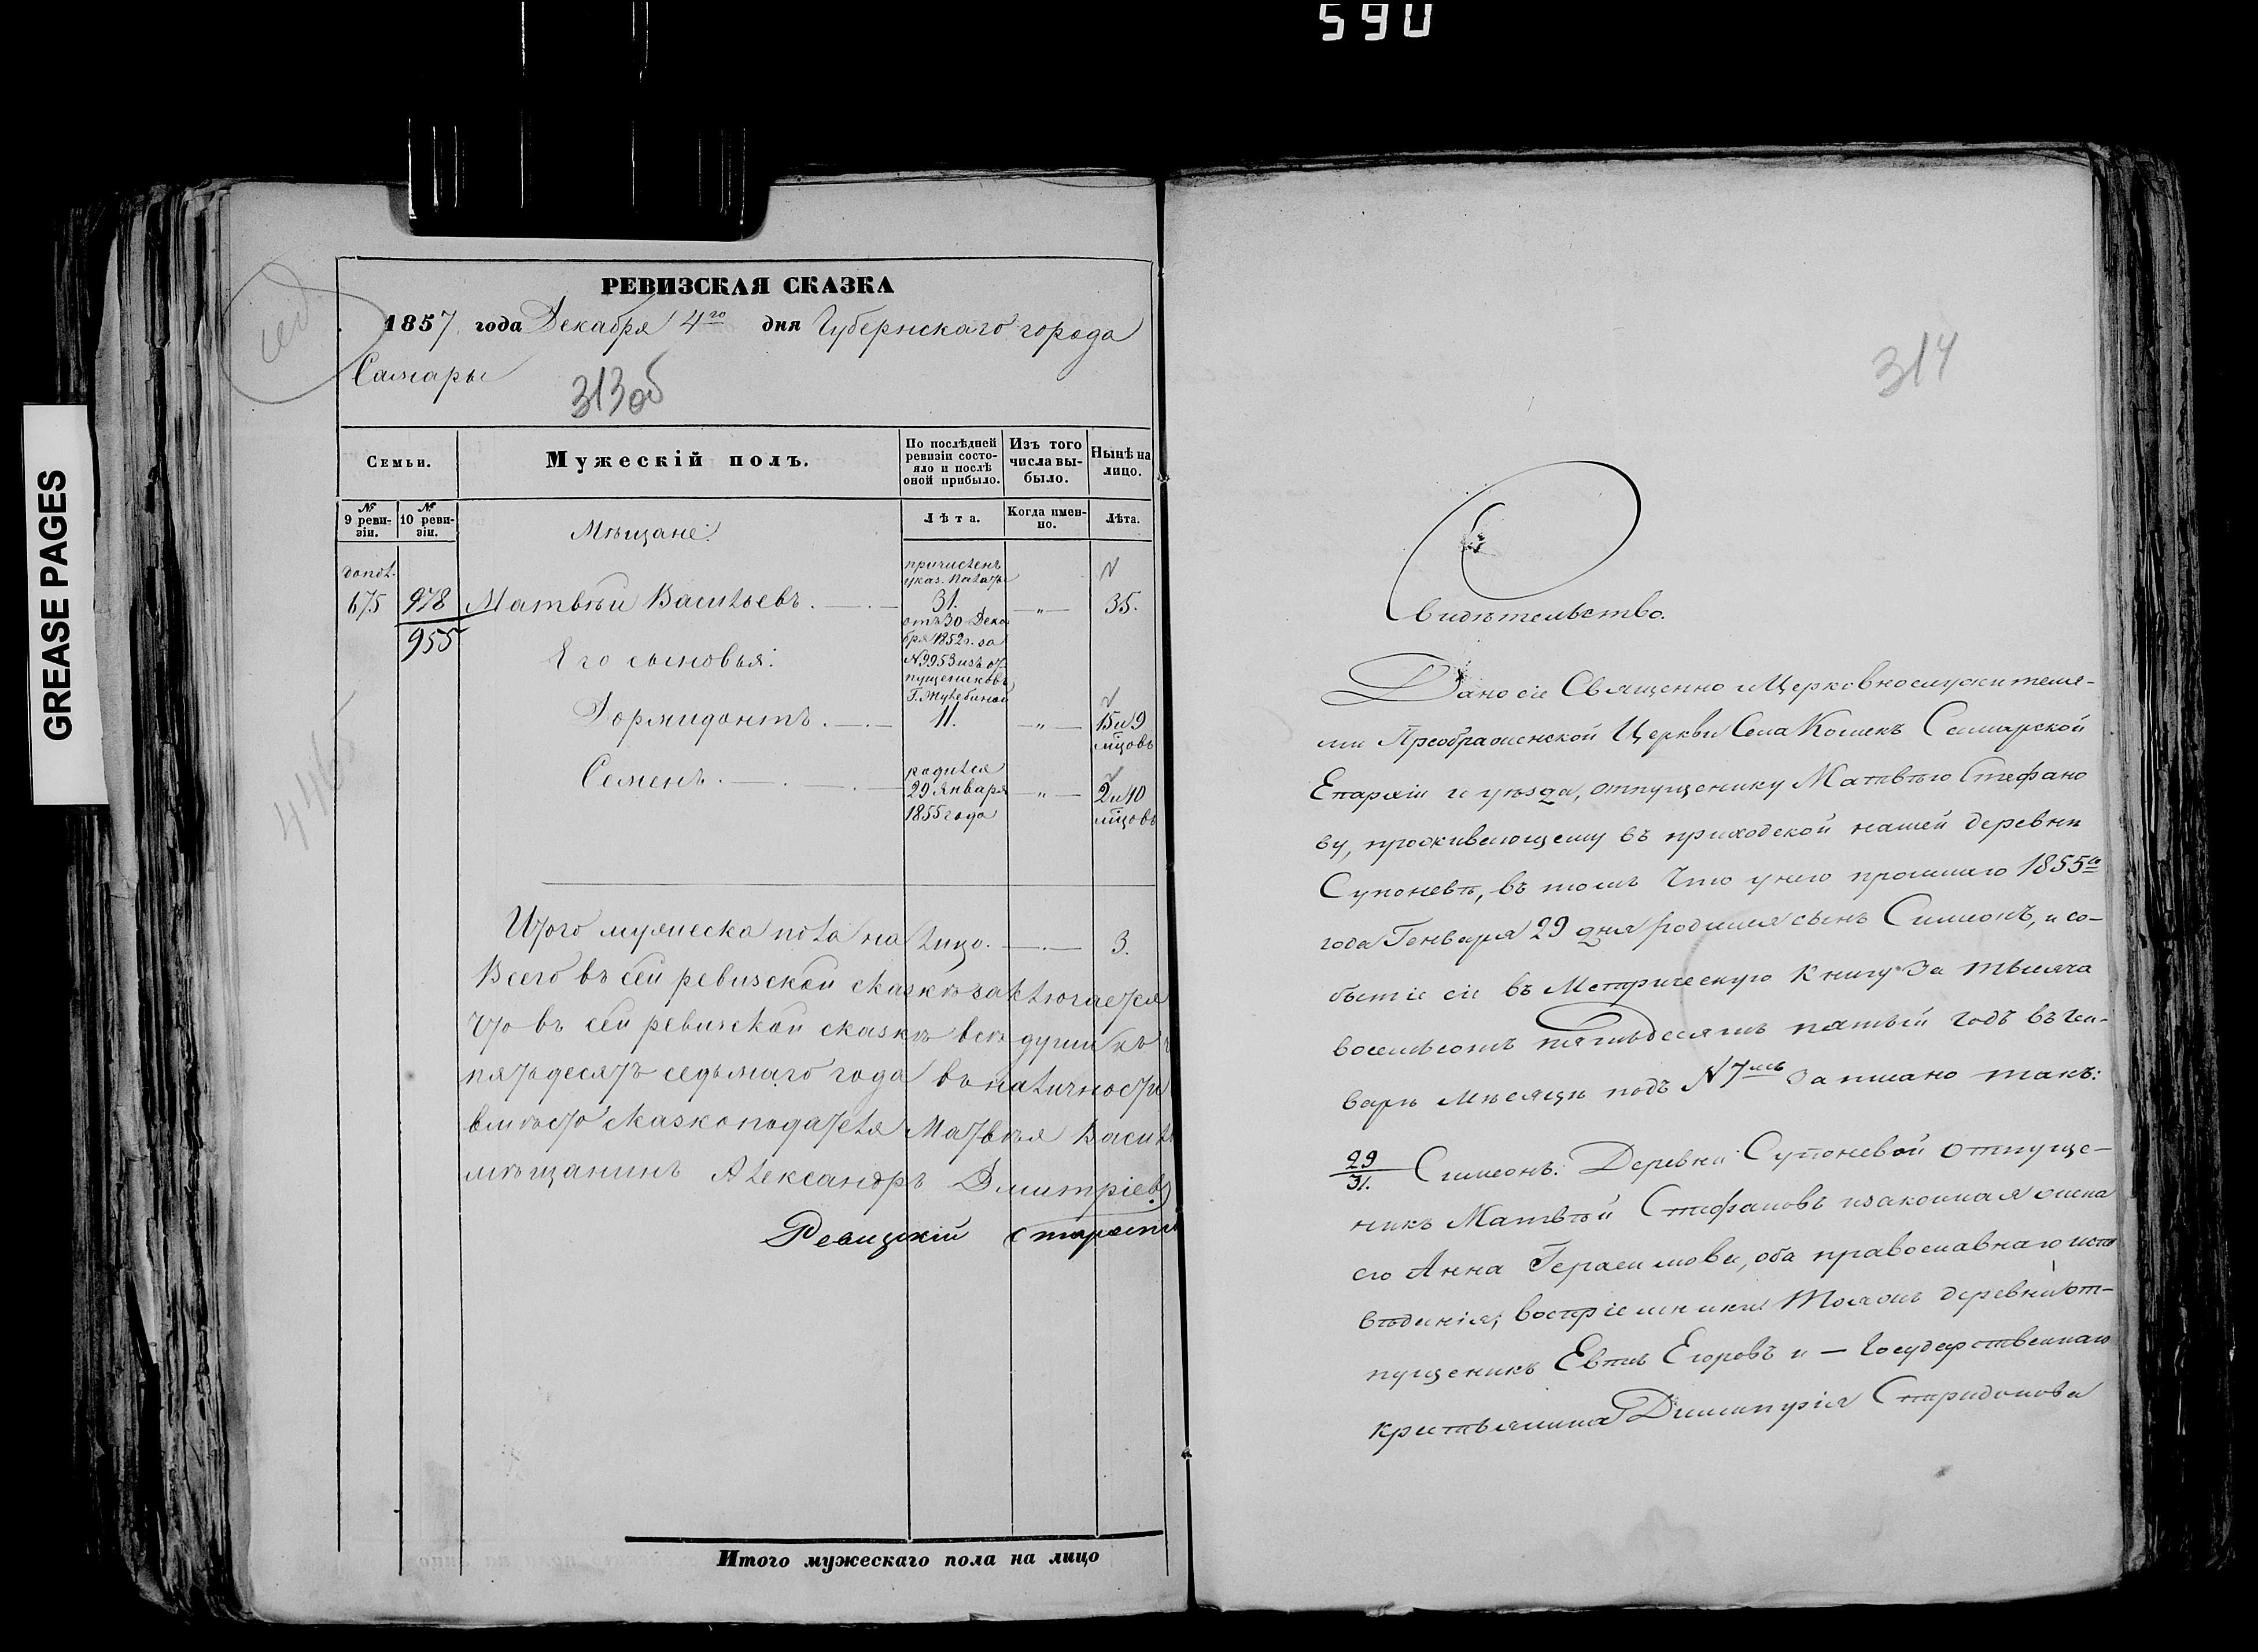 590
GREASE PAGES
РЕВИЗСКАЯ СКАЗКА
1857 года Декабря 4го дня Губернскаго города
Самары
313об
Семьи.
Мужескій полъ.
По послѣдней ревизіи состояло и послѣ оной прибыло.
Изъ того числа выбыло.
Нынѣ на лицо.
№ 9 ревизіи.
№ 10 ревизіи.
Мѣщане:
Лѣта.
Когда именно.
Лѣта.
допол.
причисленъ
указ. Палаты
675 978 Матвѣй Васильевъ. 31. „ 35.
955
отъ 30 Декабря 1852 г. за
№ 9953 изъ отпущениковъ
Его сыновья:
Дормидонтъ. 11. „ 15 и 9 мцовъ
Семенъ. родился 29 Января 1855 года „ 2 и 10 мцовъ
Итого мужеска пола на лицо. 3.
Всего въ сей ревизской сказкѣ заключается
что въ сей ревизской сказкѣ всѣ души къ
пятьдесятъ седьмаго года въ наличности
вмѣсто сказкоподателя Матвѣя Василь
мѣщанинъ Александръ Дмитріевъ
Ревизскій Староста
Итого мужескаго пола на лицо
314
Свидѣтельство.
Дано сіе Священно Церковнослужителя-
ми Преображенской Церкви Села Кошекъ Самарской
Епархіи и уѣзда, отпущенику Матвѣю Стефано
ву, проживающему въ приходской нашей деревни
Супоневѣ, въ томъ Что у него прошлаго 1855го
года Генваря 29 дня родился сынъ Симеонъ, и со-
бытіе сіе въ Метрическую Книгу За тысяча
восемьсотъ пятьдесятъ пятый годъ въ Ген-
варѣ мѣсяцѣ подъ № 7мъ записано такъ:
29/31. Симеонъ. Деревни Супоневой отпуще-
никъ Матвѣй Стефановъ и законная жена
его Анна Герасимова, оба православнаго испо
вѣданія; воспріемники: Тояжъ деревни от-
пущеникъ Евтѣ Егоровъ и — Государственнаго
крестьянина Димитрія Спридонова